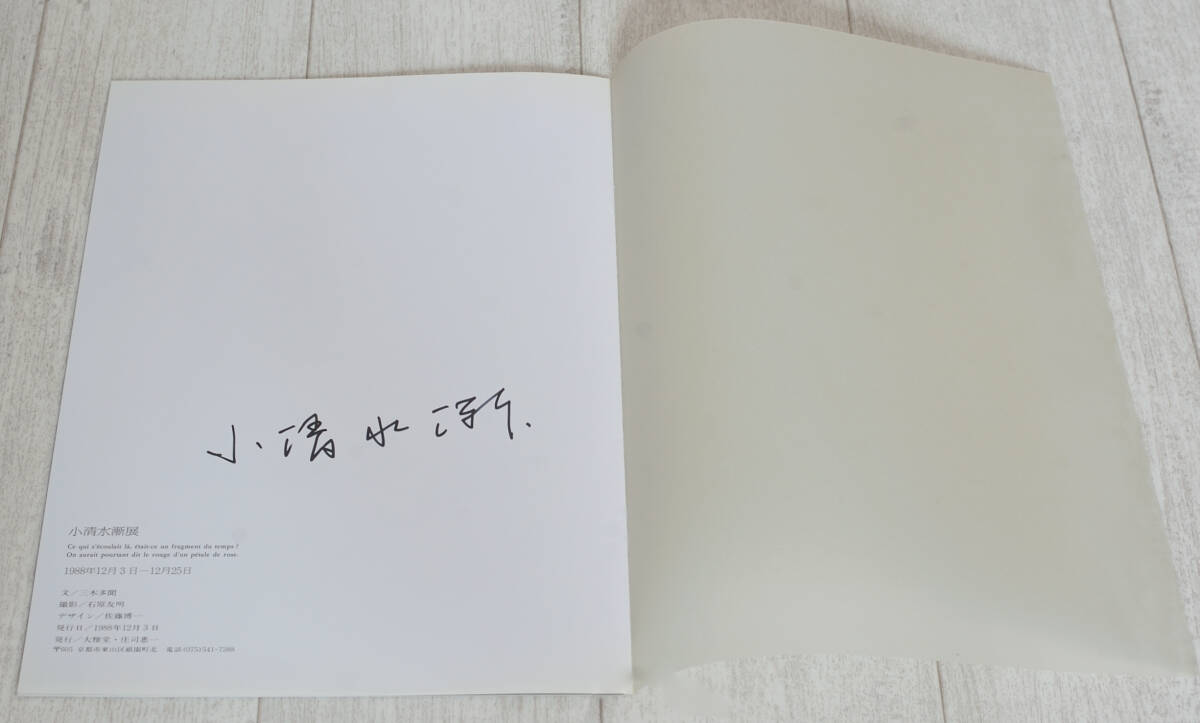 小清水漸
小清水漸展
Ce qui s'écoulait là, était-ce un fragment du temps?
On aurait pourtant dit le rouge d'un pétale de rose.
1988年12月3日—12月25日
文／三木多聞
撮影／石原友明
デザイン／佐藤博一
発行日／1988年12月3日
発行／大雅堂・庄司惠一
〒605 京都市東山区祇園町北 電話(075)541-7388